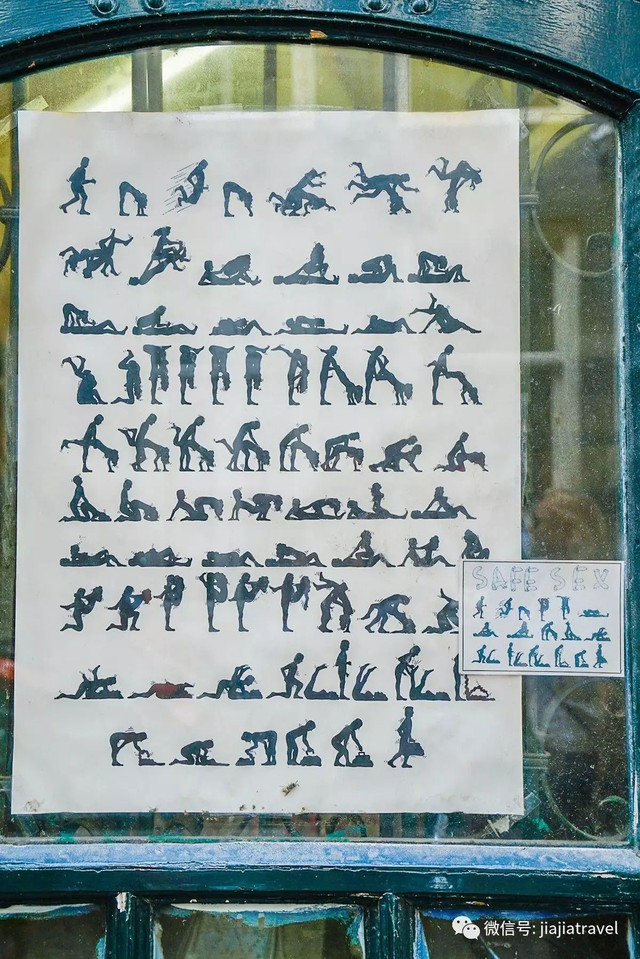 SAFE SEX
微信号: jiajiatravel